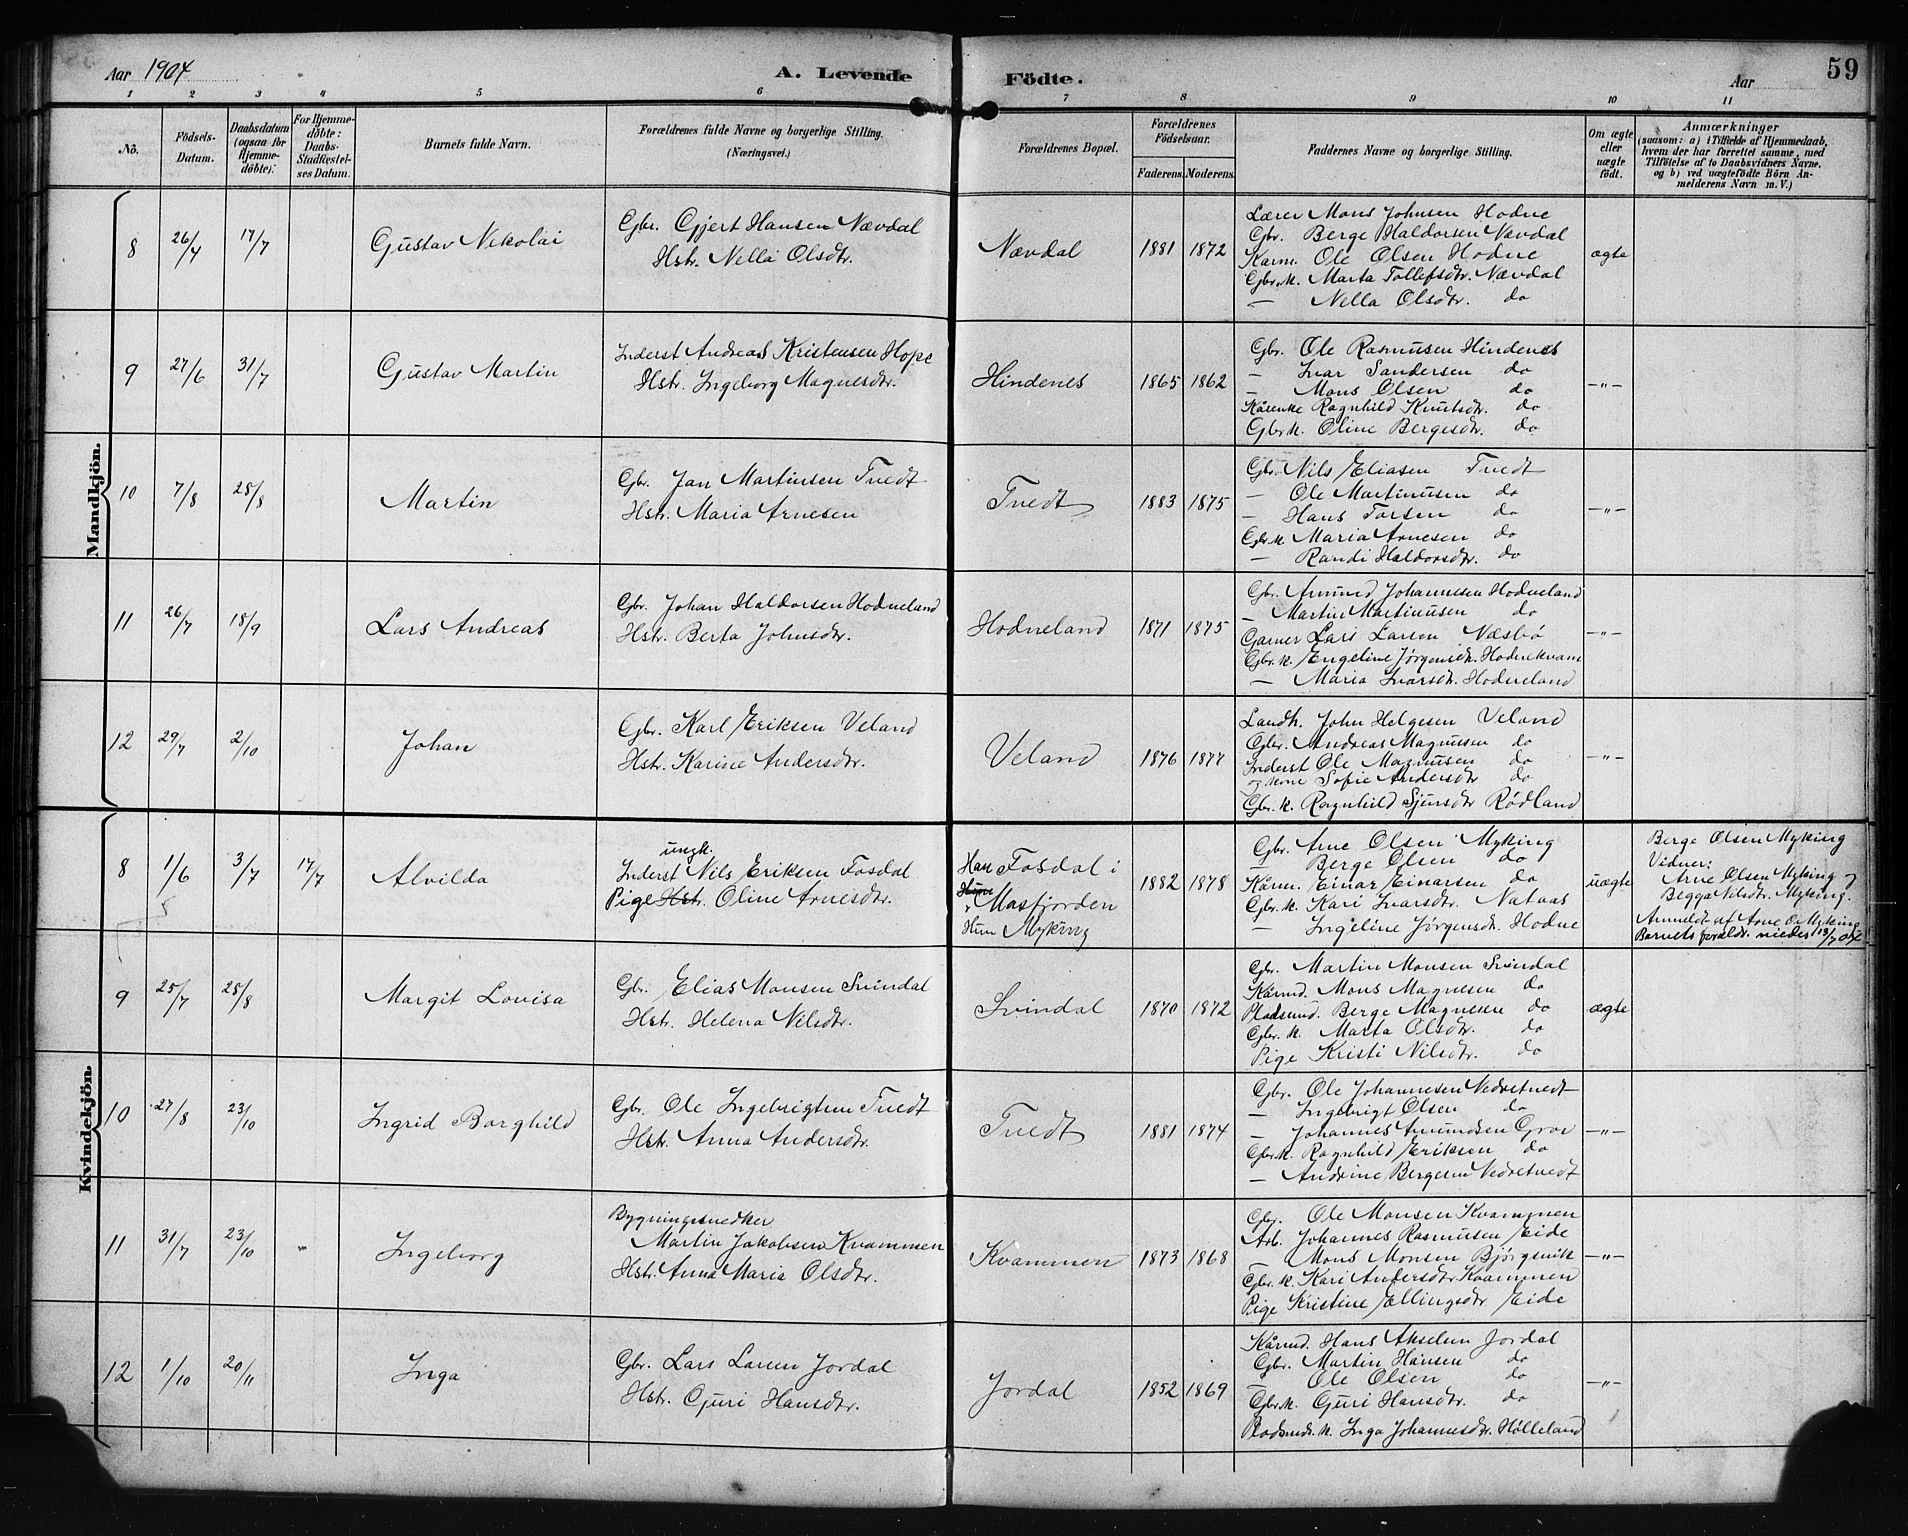 Aar 1904
A. Levende Födte.
Aar
59
1 2 3 4 5 6 7 8 9 10 11
No.
Födsels-Datum.
Daabsdatum (ogsaa for Hjemmedöbte).
For Hjemmedöbte: Daabs-Stadfæstelses Datum.
Barnets fulde Navn.
Forældrenes fulde Navne og borgerlige Stilling. (Næringsvei.)
Forældrenes Bopæl.
Forældrenes Födselsaar.
Faderens. Moderens.
Faddernes Navne og borgerlige Stilling.
Om ægte eller uægte födt.
Anmærkninger
(saasom: a) i Tilfælde af Hjemmedaab, hvem der har forrettet samme, med Tilföielse af to Daabsvidners Navne, og b) ved uægtefödte Börn Anmelderens Navn m. V.)
Mandkjön.
8 26/4 17/7 Gustav Nikolai
Gbr. Gjert Hansen Nævdal
Hstr. Nella Olsdtr.
Nævdal 1881 1872
Lærer Mons Johnsen Hodne
Gbr. Berge Haldorsen Nævdal
Karm. Ole Olsen Hodne
Gbr.k. Marta Tollefsdtr. Nævdal
— Nella Olsdtr. do
ægte
9 27/6 31/7 Gustav Martin
Inderst Andreas Kristensen Hope
Hstr. Ingeborg Magnesdtr.
Hindenes 1865 1862
Gbr. Ole Rasmusen Hindenes
— Ivar Sandersen do
— Mons Olsen do
Kårenke Ragnhild Knutsdtr. do
Gbr.k. Oline Bergesdtr. do
—"—
10 7/8 28/8 Martin
Gbr. Jan Martinsen Tvedt
Hstr. Maria Arnesen
Tvedt 1883 1875
Gbr. Nils Eliasen Tvedt
— Ole Martinusen do
— Hans Torsen do
Gbr.k. Maria Arnesen do
— Randi Haldorsdtr. do
—"—
11 26/7 18/9 Lars Andreas
Gbr. Johan Haldorsen Hodneland
Hstr. Berta Johnsdtr.
Hodneland 1871 1875
Gbr. Amund Johannesen Hodneland
— Martin Martinusen do
Garver Lars Larsen Næsbö
Gbr.k. Engeline Jørgensdtr. Hodnekvam
— Maria Ivarsdtr. Hodneland
—"—
12 29/7 2/10 Johan
Gbr. Karl Eriksen Veland
Hstr. Karine Andersdtr.
Veland 1876 1877
Landh. John Helgesen Veland
Gbr. Andreas Magnusen do
Inderst Ole Magnusen do
og kone Sofie Andersdtr do
Gbr.k. Ragnhild Sjursdtr Rödland
—"—
Kvindekjön.
8 1/6 3/7 17/7 Alvilda
ungk.
Inderst Nils Eriksen Fosdal
Pige Hstr. Oline Arnesdtr.
Han Fosdal i
Masfjorden
Hun Myking
1882 1878
Gbr. Arne Olsen Myking
Berge Olsen do
Kårm. Einar Einarsen do
Gbr.k. Kari Ivarsdtr. Nataas
— Ingeline Jørgensdtr. Hodne
uægte
Berge Olsen Myking
Vidner:
Arne Olsen Myking og
Begga Nilsdtr. Myking.
Anmeldt af Arne O. Myking
9 25/7 28/8 Margit Lovisa
Gbr. Elias Monsen Svindal
Hstr. Helena Nilsdtr.
Svindal 1870 1872
Gbr. Martin Monsen Svindal
Kårmd. Mons Magnesen do
Pladsmd. Berge Magnesen do
Gbr.k. Marta Olsdtr. do
Pige Kristi Nilsdtr. do
ægte
10 27/8 23/10 Ingrid Borghild
Gbr. Ole Ingebrigtsen Tvedt
Hstr. Anna Andersdtr.
Tvedt 1881 1874
Gbr. Ole Johannesen Nedretvedt
— Ingebrigt Olsen do
— Johannes Amundsen Grov
Gbr.k. Ragnhild Eriksen do
— Andrine Bergesen Nedretvedt
—"—
11 31/7 23/10 Ingeborg
Bygningssnedker
Martin Jakobsen Kvammen
Hstr. Anna Maria Olsdtr.
Kvammen 1873 1868
Gbr. Ole Monsen Kvammen
Arb. Johannes Rasmusen Eide
— Mons Monsen Bjørgsvik
Gbr.k. Kari Andersdtr. Kvammen
Pige Kristine Ellingsdtr. Eide
—"—
12 1/10 20/11 Inga
Gbr. Lars Larsen Jordal
Hstr. Guri Hansdtr.
Jordal 1852 1869
Kårmd. Hans Akselsen Jordal
Gbr. Martin Hansen do
— Ole Olsen do
Gbr.k. Guri Hansdtr. do
Pladsmds.k. Inga Johannesdtr. Hølleland
—"—